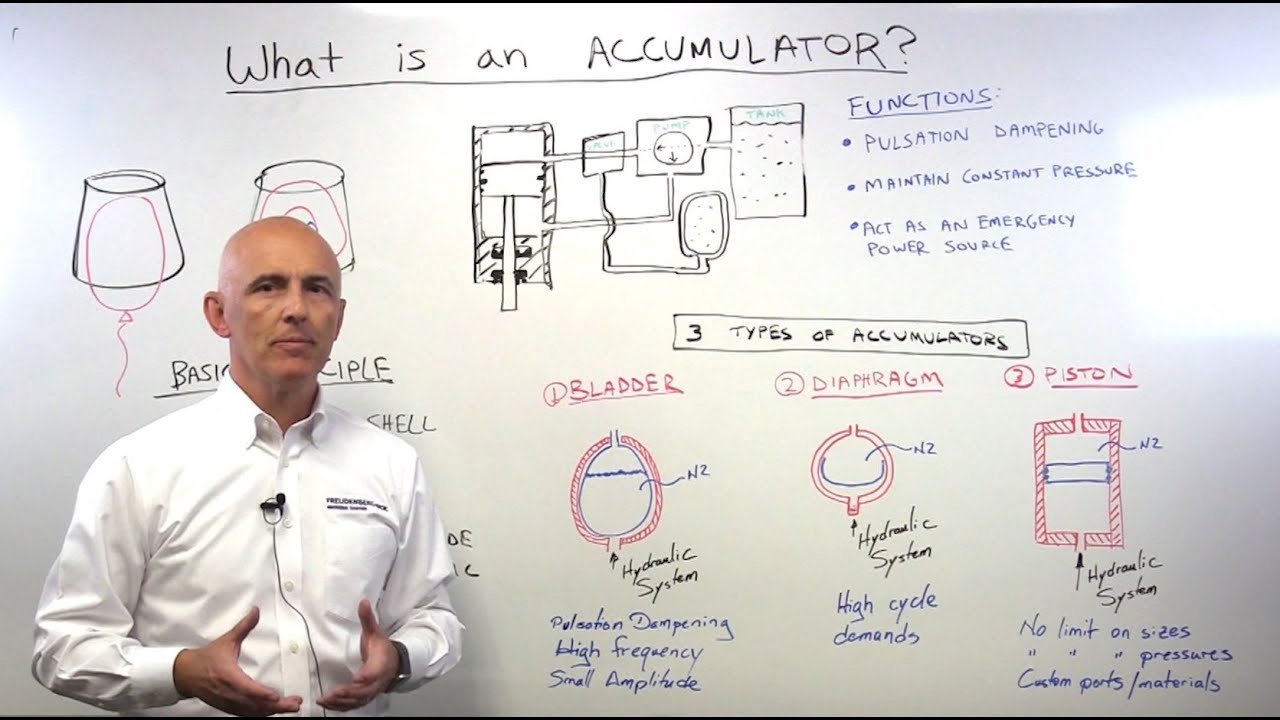 What is an ACCUMULATOR?
FUNCTIONS:
• PULSATION DAMPENING
• MAINTAIN CONSTANT PRESSURE
• ACT AS AN EMERGENCY
POWER SOURCE
VALVE
PUMP
TANK
BASIC
SHELL
3 TYPES OF ACCUMULATORS
① BLADDER
N2
Hydraulic
System
Pulsation Dampening
High frequency
Small Amplitude
② DIAPHRAGM
N2
Hydraulic
System
High cycle
demands
③ PISTON
N2
Hydraulic
System
No limit on sizes
" " " pressures
Custom ports/materials
FREUDENBERG-NOK